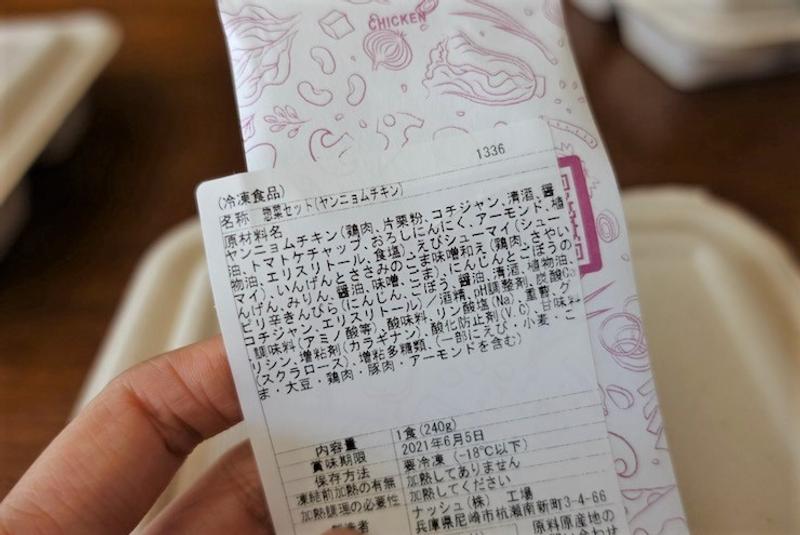 CHICKEN
1336
(冷凍食品)
名称 惣菜セット(ヤンニョムチキン)
原材料名
ヤンニョムチキン(鶏肉、片栗粉、コチジャン、清酒、醤
油、トマトケチャップ、おろしにんにく、アーモンド、植
物油、エリスリトール、食塩)、えびシューマイ(シュー
マイ)、いんげんとささみのごま味噌和え(鶏肉、さやい
んげん、みりん、醤油、味噌、ごま)、にんじんとごぼうの
ピリ辛きんぴら(にんじん、ごぼう、醤油、清酒、植物油、
コチジャン、エリスリトール)/酒精、pH調整剤、炭酸Ca、
調味料(アミノ酸等)、酸味料、リン酸塩(Na)、重曹、グ
リシン、増粘剤(カラギナン)、酸化防止剤(V.C)、甘味料
(スクラロース)、増粘多糖類、(一部にえび・小麦・ご
ま・大豆・鶏肉・豚肉・アーモンドを含む)
内容量 1食(240g)
賞味期限 2021年6月5日
保存方法 要冷凍(-18℃以下)
凍結前加熱の有無 加熱してありません
加熱調理の必要性 加熱してください
製造者 ナッシュ(株) 工場
兵庫県尼崎市杭瀬南新町3-4-66
原料原産地の